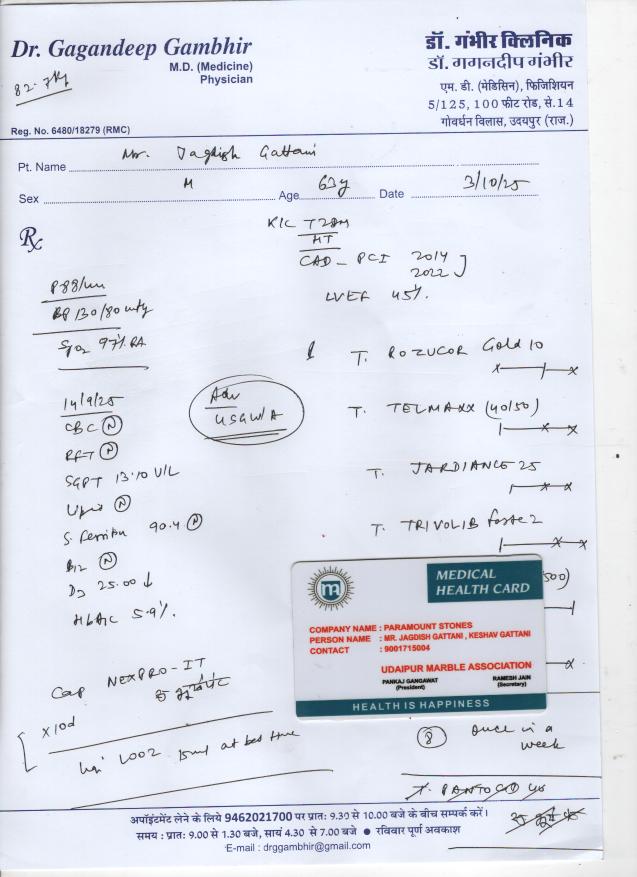 Dr. Gagandeep Gambhir
M.D. (Medicine)
Physician
82.7kg
Reg. No. 6480/18279 (RMC)
डॉ. गंभीर क्लिनिक
डॉ. गगनदीप गंभीर
एम. डी. (मेडिसिन), फिजिशियन
5/125, 100 फीट रोड, से.14
गोवर्धन विलास, उदयपुर (राज.)
Pt. Name Mr. Jagdish Gattani
Sex M Age 63y Date 3/10/25
Rx
K/C T2DM
HT
CAD - PCI 2014
2022
LVEF 45%
P 88/min
BP 130/80 mmHg
SpO2 97% RA
14/9/25
CBC (N)
RFT (N)
SGPT 13.10 U/L
Lipid (N)
S. Ferritin 90.4 (N)
B12 (N)
D3 25.00 ↓
HbA1C 5.9%
Adv
USG W/A
T. ROZUCOR Gold 10
x x
T. TELMAXX (40/50)
x x
T. JARDIANCE 25
x x
T. TRIVOLIB forte 2
x x
500)
MEDICAL
HEALTH CARD
COMPANY NAME : PARAMOUNT STONES
PERSON NAME : MR. JAGDISH GATTANI , KESHAV GATTANI
CONTACT : 9001715004
UDAIPUR MARBLE ASSOCIATION
PANKAJ GANGAWAT
(President)
RAMESH JAIN
(Secretary)
HEALTH IS HAPPINESS
Cap NEXPRO-IT
x 10d
15ml at bed time
(8) once in a
week
T. PANTOCID 40
अपॉइंटमेंट लेने के लिये 9462021700 पर प्रातः 9.30 से 10.00 बजे के बीच सम्पर्क करें।
समय : प्रातः 9.00 से 1.30 बजे, सायं 4.30 से 7.00 बजे ● रविवार पूर्ण अवकाश
E-mail : drggambhir@gmail.com